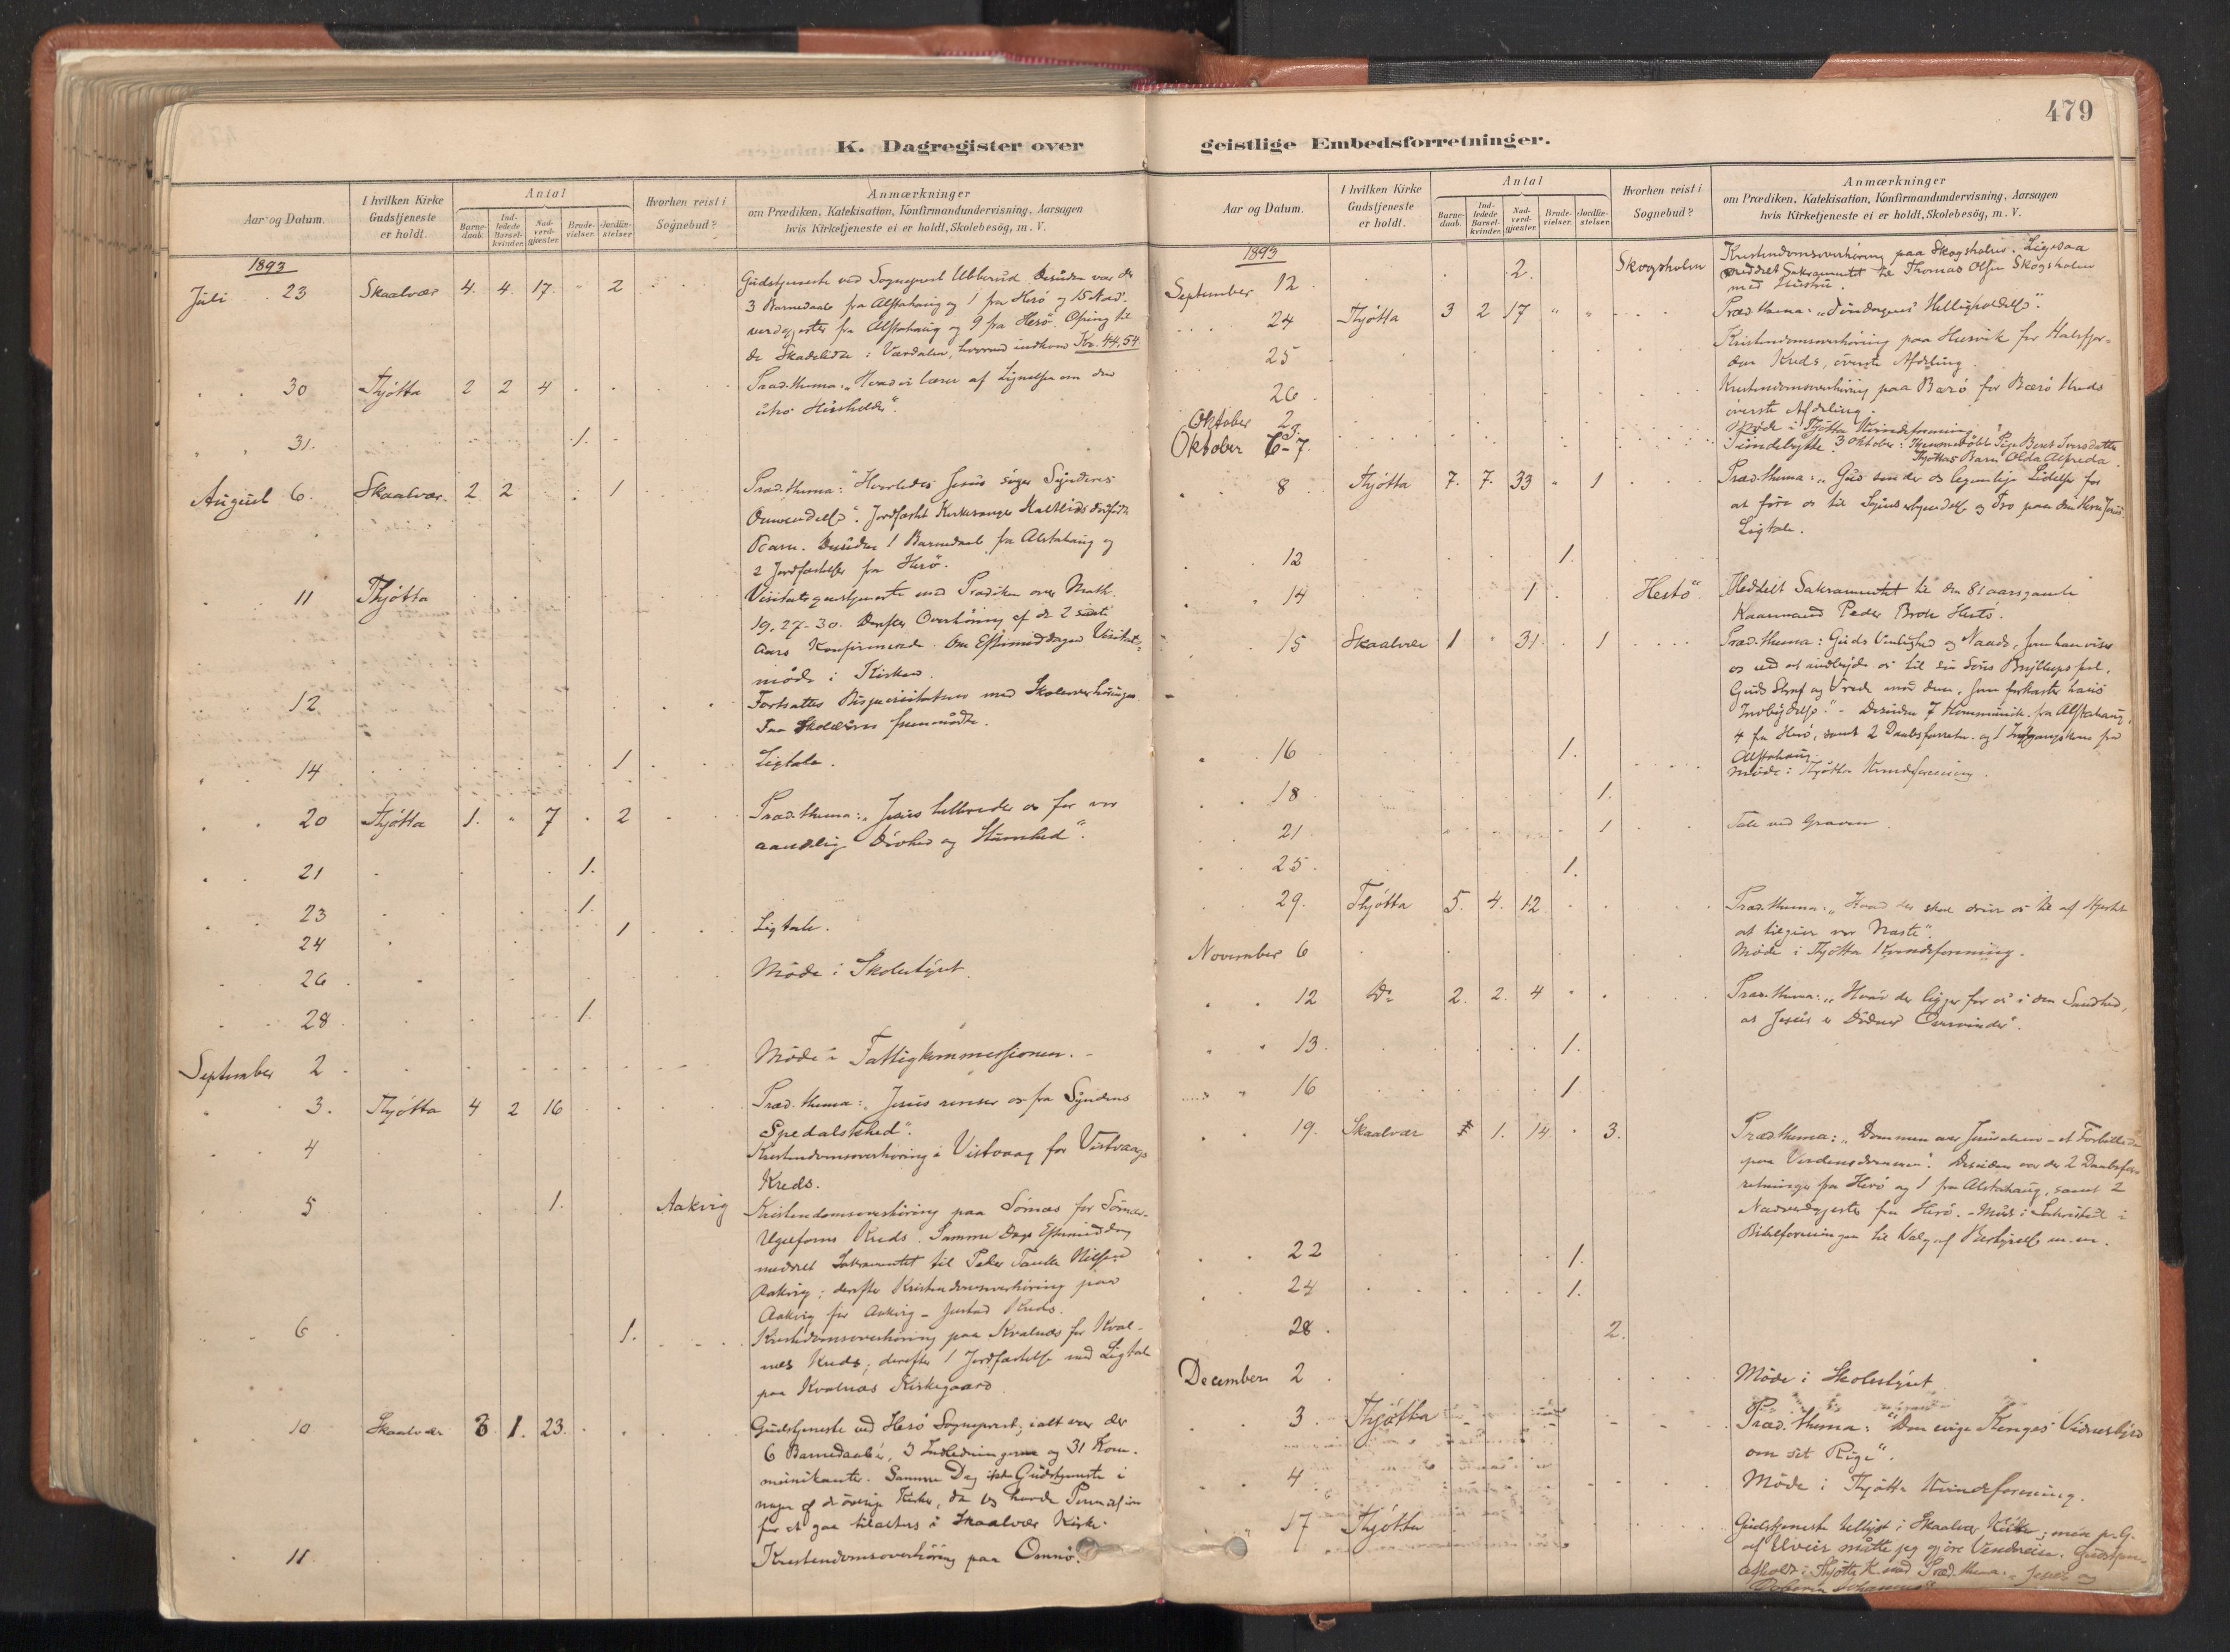 479
K. Dagregister over
Aar og Datum.
I hvilken Kirke Gudstjeneste er holdt.
Antal
Barnedaab.
Indledede Barselkvinder.
Nadverdgjester
Brudevielser.
Jordfæstelser
Hvorhen reist i Sognebud?
Anmærkninger
om Prædiken, Katekisation, Konfirmandundervisning, Aarsagen
hvis Kirketjeneste ei er holdt, Skolebesög, m. V.
1893
Juli 23 Skaalvær 4. 4. 17. " 2 Gudstjeneste ved Sogneprest Ubberud desuden var der
3 Barnedaab fra Alstahaug og 1 fra Herö og 15 Nad-
verdgjester fra Alstahaug og 9 fra Herö. Ofring til
de Skadelidte i Værdalen, hvorved indkom Kr. 44,54
30 Thjötta 2 2 4 Præd. thema: "Hvad vi lærer af Lignelsen om den
utro Husholder".
31. 1.
August 6. Skaalvær. 2 2 1 Præd. thema: "Hvorledes Jesus söger Synderes
Omvendelse". Jordfæstet Kirkesanger dödfödte
Barn. Desuden 1 Barnedaab fra Alstahaug og
2 Jordfæstelser fra Herö.
11 Thjötta Visitatsgudstjeneste med Prædiken over Math.
19, 27-30. Derefter Overhöring af de 2 sidste
Aars Konfirmerede. Om Eftermiddagen Visitats-
möde i Kirken.
12 Fortsattes Bispevisitatsen med Skoleoverhöringer
14 1 Ligtale.
20 Thjötta 1. " 7 2 Præd. thema: "Jesus helbreder os for vor
aandelig Dövhed og Stumhed".
21 1.
23 1.
24 1 Ligtale.
26 Möde i Skolestyret.
28 1.
September 2 Möde i Fattigkommissionen.
3. Thjötta 4 2 16 Præd. thema: "Jesus renser os fra Syndens
Spedalskhed".
4 Kristendomsoverhöring i Vistvaag for Vistvaags
Kreds.
5 1. Aakvig Kristendomsoverhöring paa Sörnæs for Sörnæs-
Kreds. Samme Dags Eftermiddag
meddelt Sakramentet til Peder Nilsen
Aakvig; derefter Kristendomsoverhöring paa
Aakvig for Aakvig - Kreds.
6 1. Kristendomsoverhöring paa Kvalnæs for Kval-
næs Kreds; derefter 1 Jordfæstelse med Ligtale
paa Kvalnæs Kirkegaard.
10 Skaalvær 3 1. 23. Gudstjeneste ved Herö Sogneprest; ialt var der
6 Barnedaab, 3 Indledninger og 31 Kom-
munikanter. Samme Dag ikke Gudstjeneste i
nogen af de övrige Kirker, da jeg havde Permission
for at gaa tilalters i Skaalvær Kirke.
11. Kristendomsoverhöring paa Omnö.
geistlige Embedsforretninger.
Aar og Datum.
I hvilken Kirke Gudstjeneste er holdt.
Antal
Barnedaab.
Indledede Barselkvinder.
Nadverdgjester
Brudevielser.
Jordfæstelser.
Hvorhen reist i Sognebud?
Anmærkninger
om Prædiken, Katekisation, Konfirmandundervisning, Aarsagen
hvis Kirketjeneste ei er holdt, Skolebesög, m. V.
1893
September 12 2. Skogsholm Kristendomsoverhöring paa Skogsholm. Ligesaa
meddelt Sakramentet til Thomas Olsen Skogsholm
med Hustru.
24 Thjötta 3 2 17 " " Præd. thema: "Söndagens Helligholdelse".
25 Kristendomsoverhöring paa Husvik for
Kreds, överste Afdeling.
26 Kristendomsoverhöring paa Bærö for Bærö Kreds
överste Afdeling.
Oktober 2. Möde i Thjötta Kvindeforening
Oktober 6-7. 3 Oktober: Hjemmedöbt Pige
Barn Olda Alfreda.
8 Thjötta 7. 7. 33 " 1 Præd. thema: "Gud sender os legemlige Lidelser for
at före os til Synderkjendelse og Tro paa den Herre Jesus".
Ligtale.
12 1.
14 1 Hestö Meddelt Sakramentet til den 81 aarsgamle
Kaarmand Peder Hestö.
15 Skaalvær 1 " 31. 1 Præd. thema: Guds Venlighed og Naade, som han viser
os ved at indbyde os til sin Söns Bryllupsfest.
Guds Straf og Vrede mod dem, som forkaster hans
Indbydelse." - Desuden 7 Kommunik. fra Alstahaug,
4 fra Herö, samt 2 Daabsforretn. og 1 fra
Alstahaug.
16 1. Möde i Thjötta Kvindeforening.
18 1.
21 1 Tale ved Graven.
25. 1.
29. Thjötta 5. 4. 12 Præd. thema: "Hvad der skal drive os til af Hjertet
at tilgive vor Næste".
November 6 Möde i Thjötta Kvindeforening.
12 Do 2. 2. 4 Præd. thema: "Hvad der ligger for os i den Sandhed,
at Jesus er Dödens Overvinder".
13. 1.
16 1
19. Skaalvær 1. 14 3. Præd. thema: "Dommen over Jerusalem - et Forbillede
paa Verdensdommen". Desuden var der 2 Daabsfor-
retninger fra Herö og 1 fra Alstahaug, samt 2
Nadverdgjester fra Herö. - Möde i Sakristiet i
Bibelforeningen til Valg af Bestyrelse m.m.
22 1.
24 1.
28. 2.
December 2 Möde i Skolestyret
3. Thjötta Præd. thema: "Den evige Konges Vidnesbyrd
om sit Rige".
4 Möde i Thjötta Kvindeforening.
17 Thjötta Gudstjeneste tillyst i Skaalvær Kirke; men p. G.
af Uveir maatte jeg gjöre Vendreise.
afholdt i Thjötta K. med Præd. thema: Jesus og